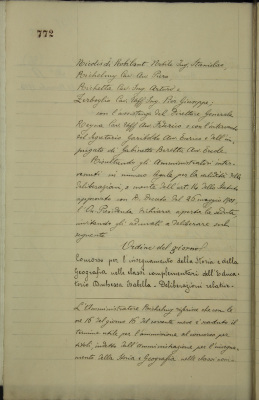 772
Nicolis di Robilant Nobile Ing. Stanislao,
Pechelung Cav. Avv. Piero
Richetta Cav. Ing. Antonio e
Zerboglio Cav. Uff. Ing. Prof. Giuseppe;
con l'assistenza del Direttore Generale
Cav. Uff. Avv. Federico e con l'intervento
del Segretario Garibaldi Avv. Enrico e dell'im-
piegato di Gabinetto Beretta Avv. Ercole.
Risultando gli Amministratori inter-
venuti in numero legale per la validità delle
deliberazioni, a mente dell'art. 14 dello Statuto
approvato con R. Decreto del 25 maggio 1900,
l'On. Presidente dichiara aperta la seduta
invitando gli adunati a deliberare sul
seguente
Ordine del giorno
Concorso per l'insegnamento della Storia e della
Geografia nelle classi complementari dell'Educa-
torio Duchessa Isabella - Deliberazioni relative.
L'Amministratore riferisce che con le
ore 16 del giorno 15 del corrente mese è scaduto il
termine utile per l'ammissione al concorso per
titoli, indetto dall'amministrazione per l'insegna-
mento della Storia e Geografia nelle classi com-